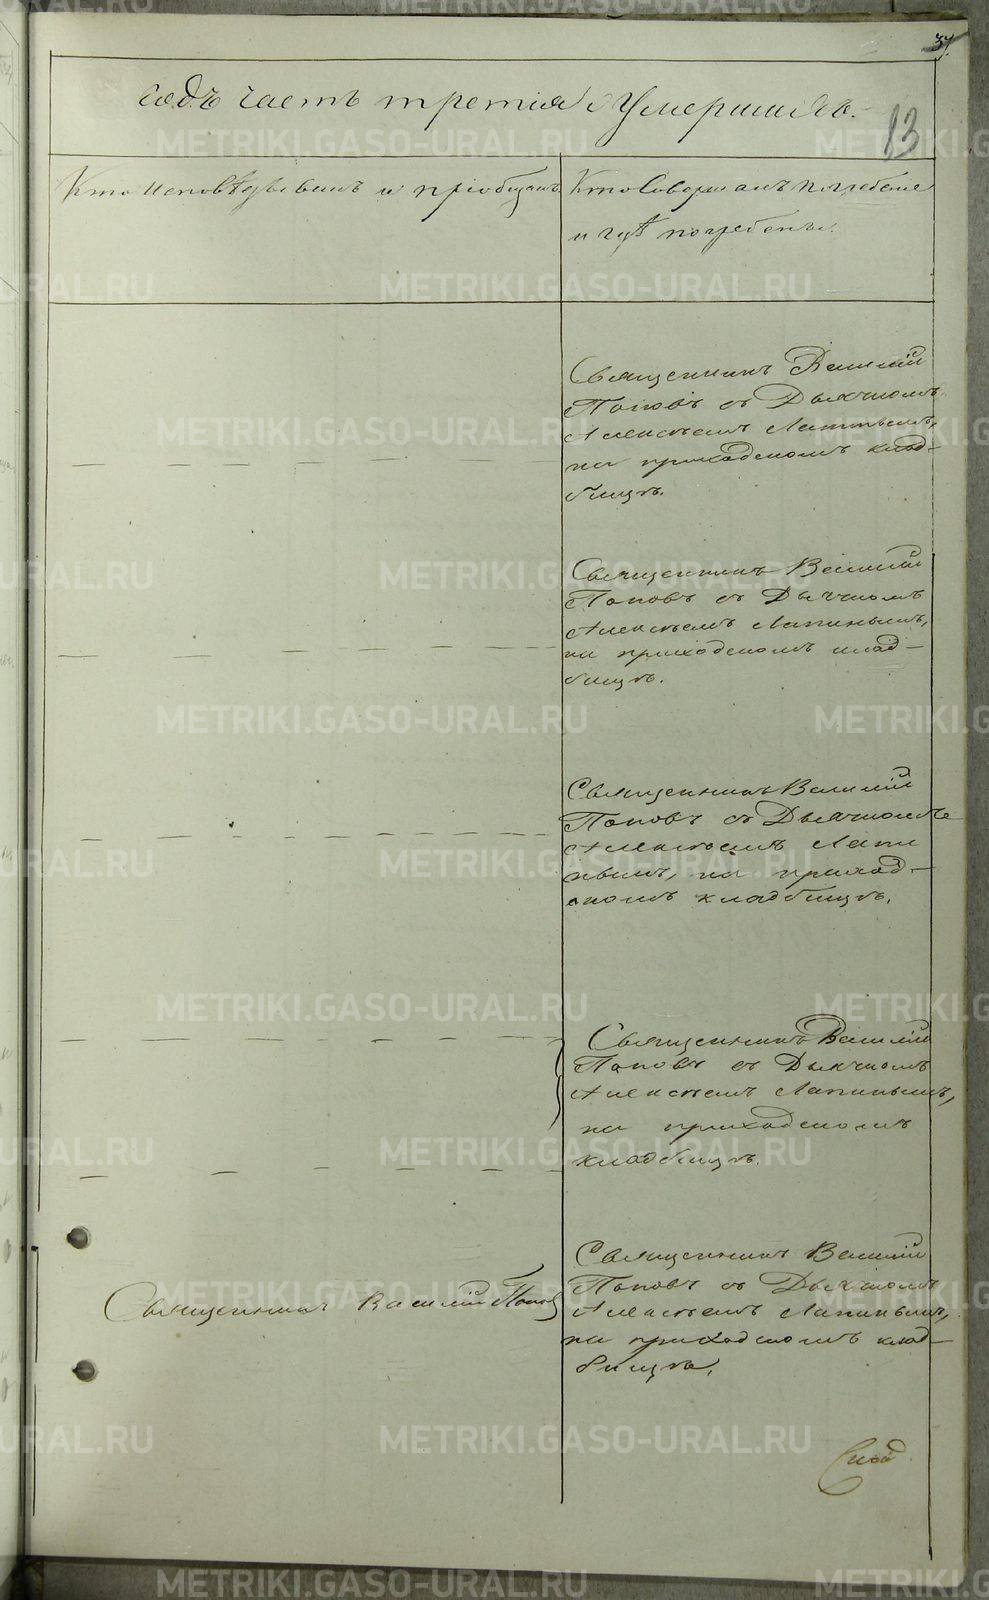 37.
годъ часть третія о Умершихъ.
13
Кто исповѣдывалъ и пріобщалъ
Кто Совершалъ погребеніе
и гдѣ погребены.
Священникъ Василій
Поповъ съ Дьячкомъ
Алексѣемъ Лапинымъ,
на приходскомъ клад-
бищѣ.
Священникъ Василій
Поповъ съ Дьячкомъ
Алексѣемъ Лапинымъ,
на приходскомъ клад-
бищѣ.
Священникъ Василій
Поповъ съ Дьячкомъ
Алексѣемъ Лапи
нымъ, на приход-
скомъ кладбищѣ.
Священникъ Василій
Поповъ съ Дьячкомъ
Алексѣемъ Лапинымъ,
на приходскомъ
кладбищѣ.
Священникъ Василій Поповъ
Священникъ Василій
Поповъ съ Дьячкомъ
Алексѣемъ Лапинымъ,
на приходскомъ клад-
бищѣ.
METRIKI.GASO-URAL.RU